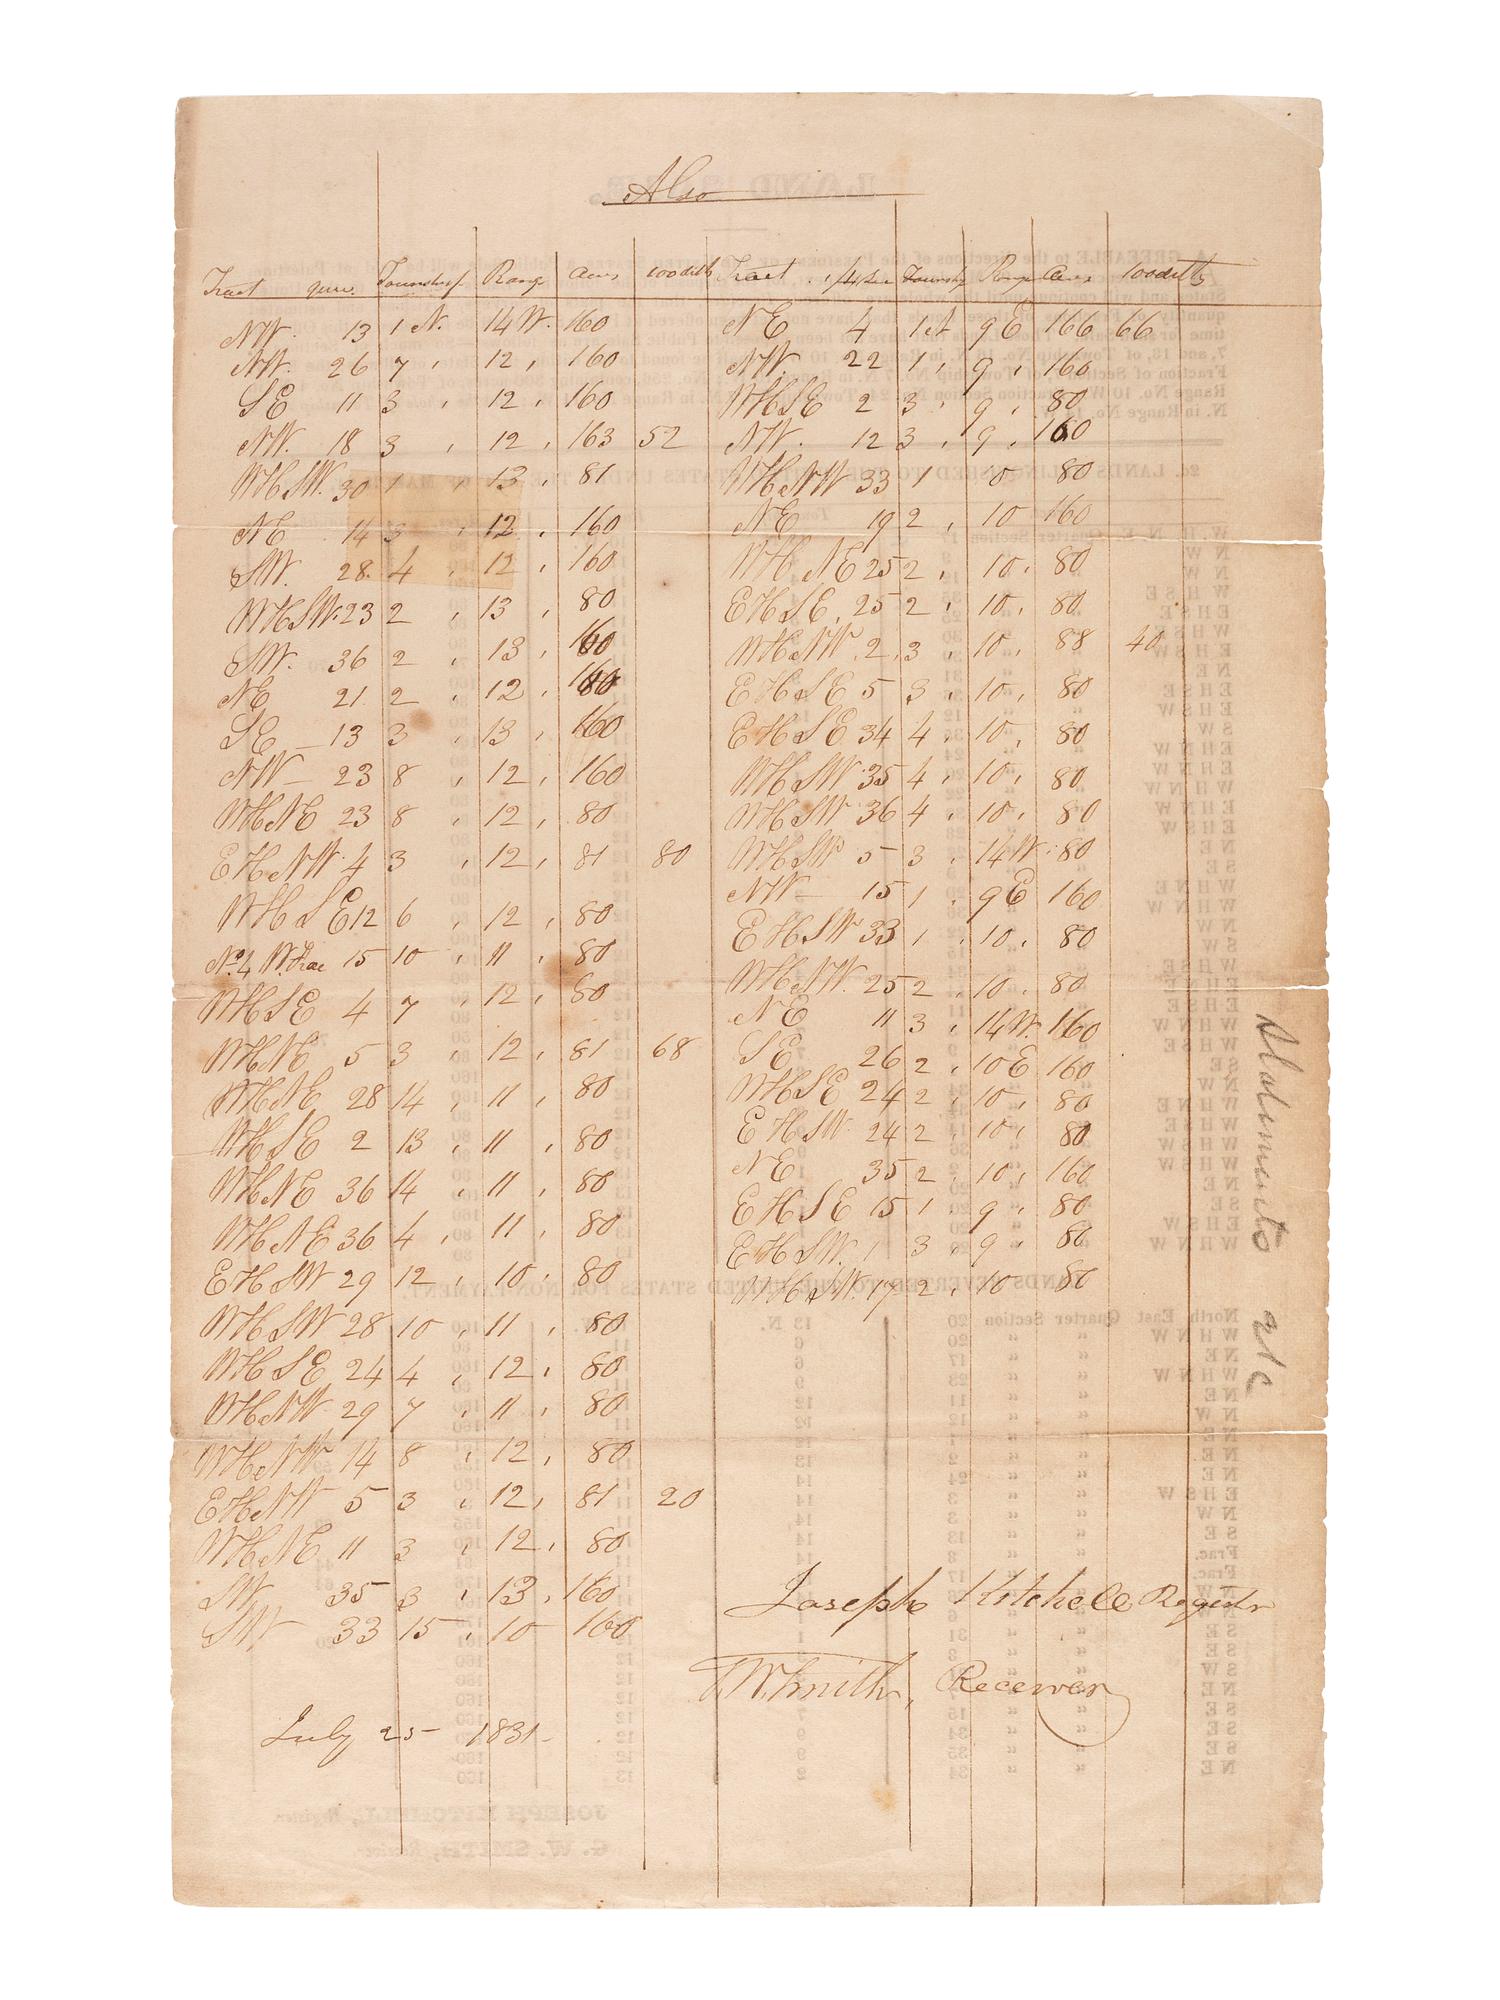 Also
Tract quar. Township Range Acres 100dths
NW. 13 1 N. 14 W. 160
NW. 26 7 " 12 " 160
SE 11 3 " 12 " 160
NW. 18 3 " 12 " 163 52
WHSW. 30 1 " 13 " 81
NE 14 3 " 12 " 160
SW. 28 4 " 12 " 160
WHSW. 23 2 " 13 " 80
SW. 36 2 " 13 " 160
NE 21 2 " 12 "
SE 13 3 " 13 " 160
NW 23 8 " 12 " 160
WHNE 23 8 " 12 " 80
EHNW. 4 3 " 12 " 81 80
WHSE 12 6 " 12 " 80
No. 4 W. Frac 15 10 " 11 " 80
WHSE 4 7 " 12 " 80
WHNE 5 3 " 12 " 81 68
WHNE 28 14 " 11 " 80
WHSE 2 13 " 11 " 80
WHNE 36 14 " 11 " 80
WHNE 36 4 " 11 " 80
EHSW 29 12 " 10 " 80
WHSW 28 10 " 11 " 80
WHSE 24 4 " 12 " 80
WHNW. 29 7 " 11 " 80
WHNW 14 8 " 12 " 80
EHNW 5 3 " 12 " 81 20
WHNE 11 3 " 12 " 80
SW. 35 3 " 13 " 160
SW 33 15 " 10 160
July 25 1831
Tract Township Range Acres 100dths
NE 4 1 N 9 E 166 66
NW. 22 1 " 9 " 160
WHSE 2 3 " 9 " 80
NW. 12 3 " 9 " 160
WHNW 33 1 10 80
NE 19 2 " 10 160
WHNE 25 2 " 10 " 80
EHSE. 25 2 " 10 " 80
WHNW. 2 3 " 10 " 88 40
EHSE 5 3 " 10 " 80
EHSE 34 4 " 10 " 80
WHSW 35 4 " 10 " 80
WHSW 36 4 " 10 " 80
WHSW 5 3 " 14 W. 80
NW 15 1 " 9 E 160
EHSW 33 1 " 10 " 80
WHNW. 25 2 " 10 " 80
NE 11 3 " 14 W. 160
SE 26 2 " 10 E 160
WHSE 24 2 " 10 " 80
EHSW. 24 2 " 10 " 80
NE 35 2 " 10 " 160
EHSE 15 1 " 9 " 80
EHSW. 1 3 " 9 " 80
WHSW. 17 2 " 10 80
Joseph Kitchell Register
G. W. Smith, Receiver